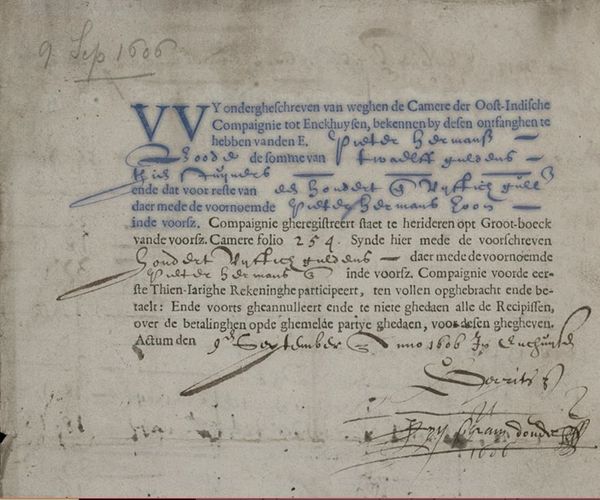 9 Sep 1606
VVY ondergheschreven van weghen de Camere der Oost-Indische
Compaignie tot Enckhuysen, bekennen by desen ontfanghen te
hebben vanden E. Pieter Hermansz
de somme van twaelff guldens
thien stuyvers
ende dat voor reste van de hondert vyftich gull
daer mede de voornoemde Pieter Hermans zoon
inde voorsz. Compaignie gheregistreert staet te herideren opt Groot-boeck
vande voorsz. Camere folio 254. Synde hier mede de voorschreven
hondert vyftich guldens daer mede de voornoemde
Pieter Hermans inde voorsz. Compaignie voorde eer-
ste Thien-Iarighe Rekeninghe participeert, ten vollen opghebracht ende be-
taelt: Ende voorts gheannulleert ende te niete ghedaen alle de Recipissen,
over de betalinghen opde ghemelde partye ghedaen, voor desen ghegheven.
Actum den 9 September Anno 1606
1606